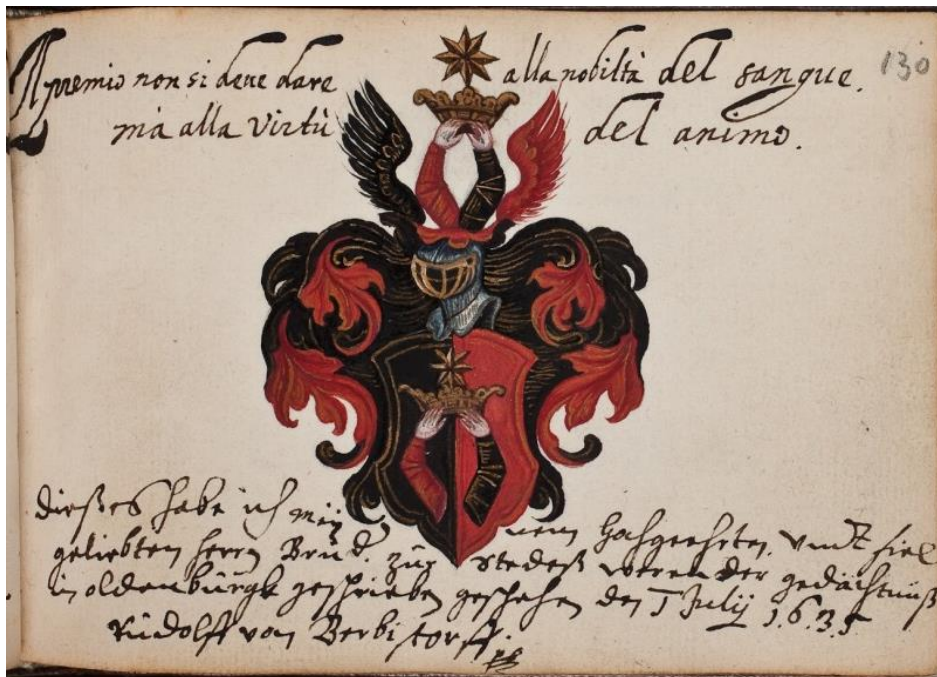 Il premio non si deve dare alla nobiltà del sangue. 130
mà alla virtù del animo.
dießes habe ich meinem hochgeehrten vndt fiel
geliebten herrn Brud. zur stedeß werender gedächtnüß
in oldenburgk geschrieben geschehen den 1 Julij 1.6.3.5
Rudolff von Berbistorff.